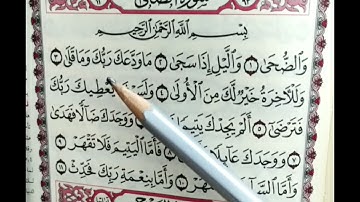 بِسْمِ اللَّهِ الرَّحْمَٰنِ الرَّحِيمِ
وَالضُّحَىٰ ١ وَالَّيْلِ إِذَا سَجَىٰ ٢ مَا وَدَّعَكَ رَبُّكَ وَمَا قَلَىٰ ٣
وَلَلْآخِرَةُ خَيْرٌ لَّكَ مِنَ الْأُولَىٰ ٤ يُعْطِيكَ رَبُّكَ
فَتَرْضَىٰ ٥ أَلَمْ يَجِدْكَ يَتِيمًا وَوَجَدَكَ ضَالًّا فَهَدَىٰ
٧ وَوَجَدَكَ عَائِلًا فَأَمَّا الْيَتِيمَ فَلَا تَقْهَرْ ٩
وَأَمَّا ١٠ وَأَمَّا بِنِعْمَةِ رَبِّكَ فَحَدِّثْ ١١